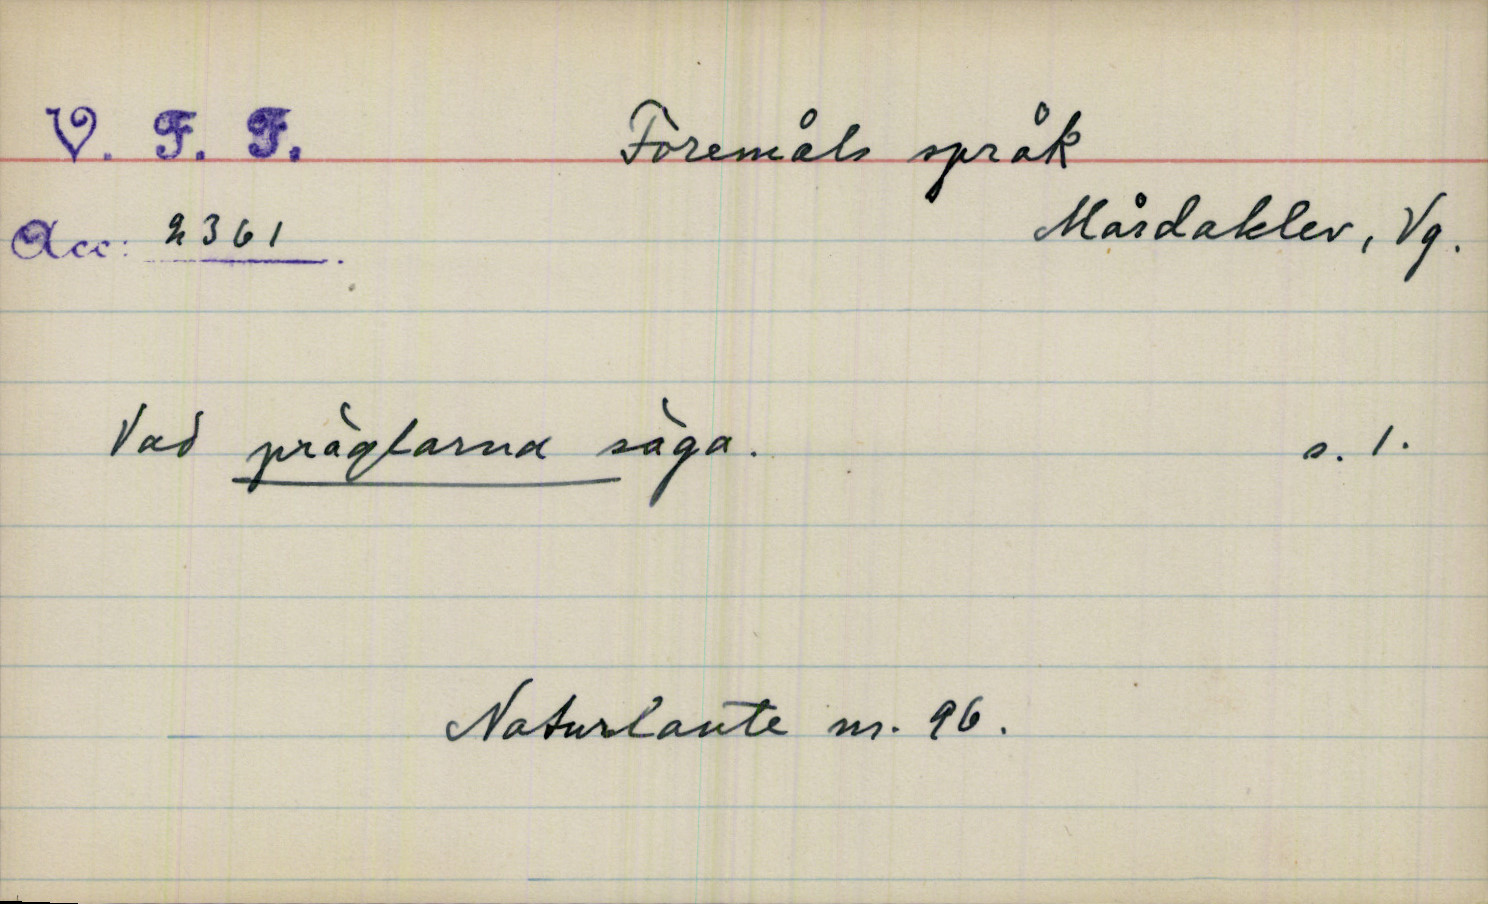 V. F. F.
Föremåls språk
Acc: 2361.
Mårdaklev, Vg.
Vad präglarna säga. s. 1.
Naturlaute nr. 96.